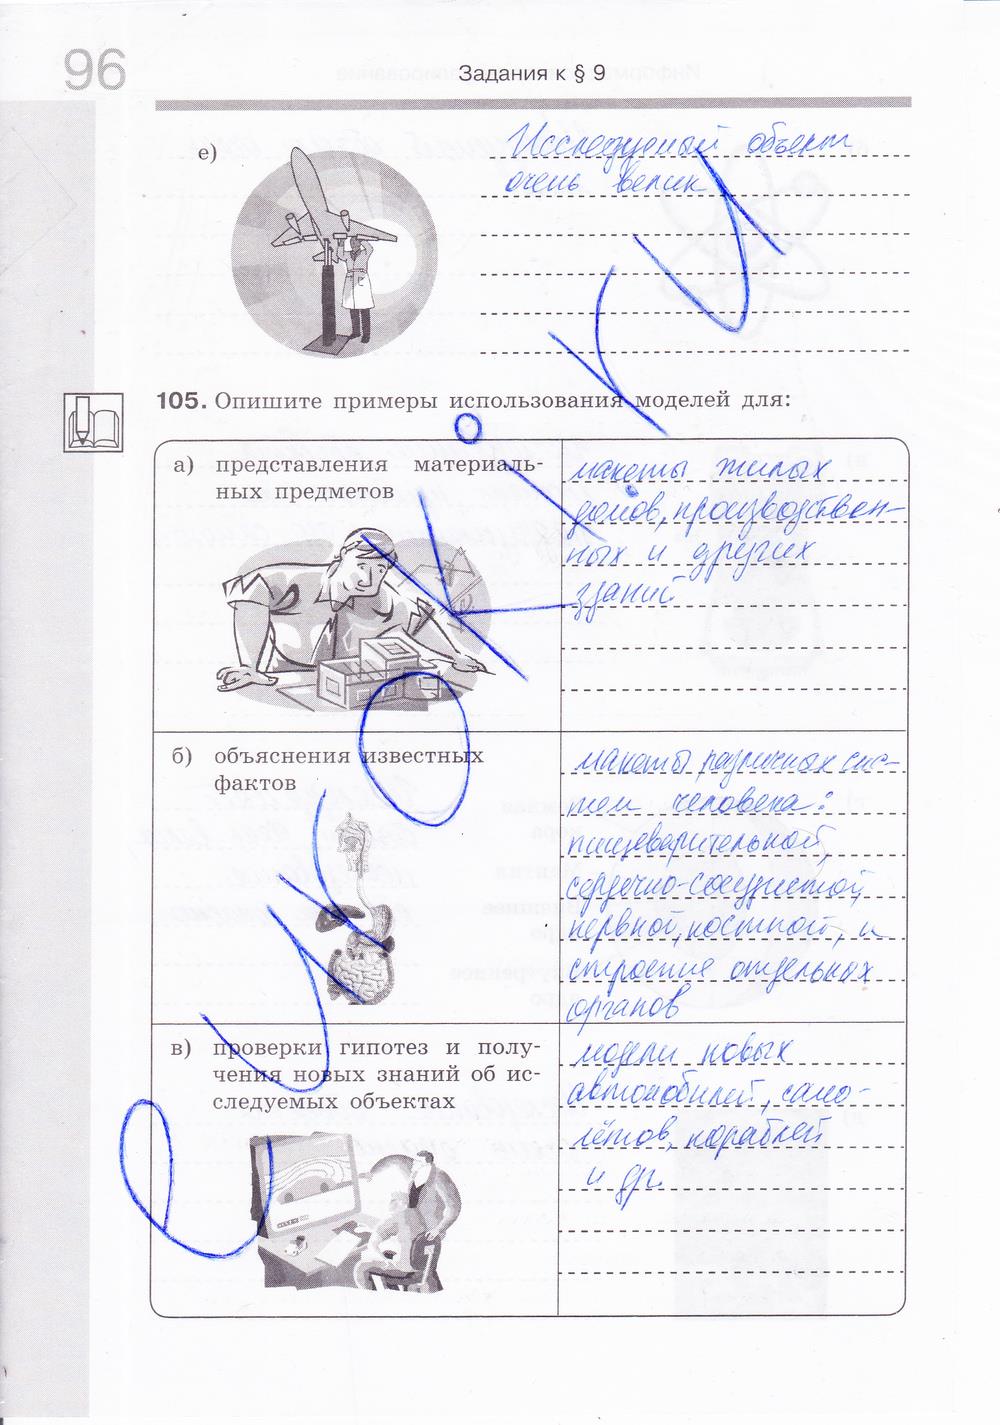 96
Задания к § 9
е)
Исследуемый объект
очень велик
105. Опишите примеры использования моделей для:
а) представления материаль-
ных предметов
макеты жилых
домов, производствен-
ных и других
зданий
б) объяснения известных
фактов
макеты различных сис-
тем человека:
пищеварительной,
сердечно-сосудистой,
нервной, костной, и
строение отдельных
органов
в) проверки гипотез и полу-
чения новых знаний об ис-
следуемых объектах
модели новых
автомобилей, само-
лётов, кораблей
и др.